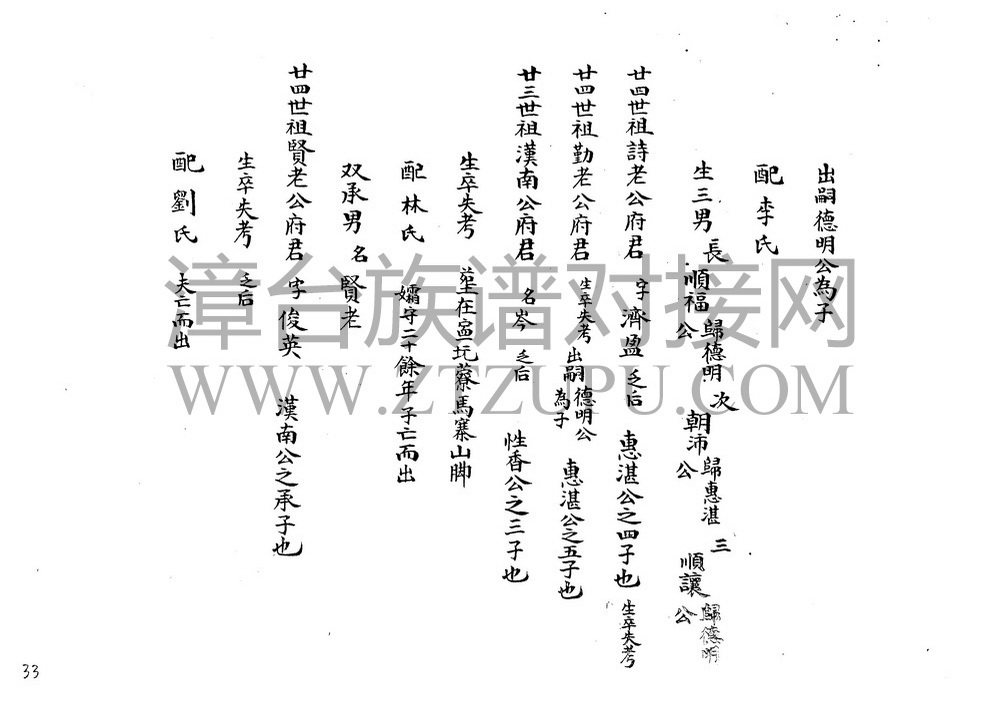 出嗣德明公為子
配李氏
生三男 長順福公 歸德明 次朝沛公 歸惠湛 三順讓公 歸德明
廿四世祖詩老公府君 字濟盈 乏后 惠湛公之四子也 生卒失考
廿四世祖勤老公府君 生卒失考 出嗣德明公為子 惠湛公之五子也
廿三世祖漢南公府君 名岑 乏后 性香公之三子也
生卒失考 塋在 坑藔馬寨山脚
配林氏 孀守二十餘年子亡而出
双承男名賢老
廿四世祖賢老公府君 字俊英 漢南公之承子也
生卒失考 乏后
配劉氏 夫亡而出
33
漳台族谱对接网
WWW.ZTZUPU.COM